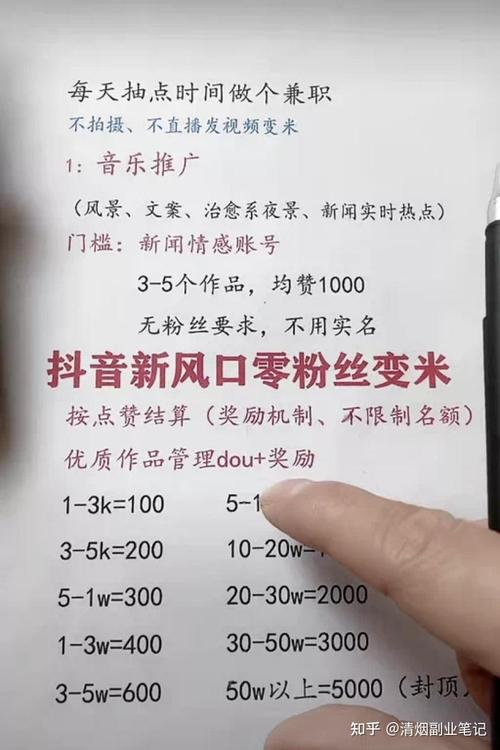 每天抽点时间做个兼职
不拍摄、不直播发视频变米
1: 音乐推广
（风景、文案、治愈系夜景、新闻实时热点）
门槛：新闻情感账号
3-5个作品，均赞1000
无粉丝要求，不用实名
抖音新风口零粉丝变米
按点赞结算（奖励机制、不限制名额）
优质作品管理dou+奖励
1-3k=100
5-1
3-5k=200
10-20w=
5-1w=300
20-30w=2000
1-3w=400
30-50w=3000
3-5w=600
50w以上=5000（封顶
知乎 @清烟副业笔记